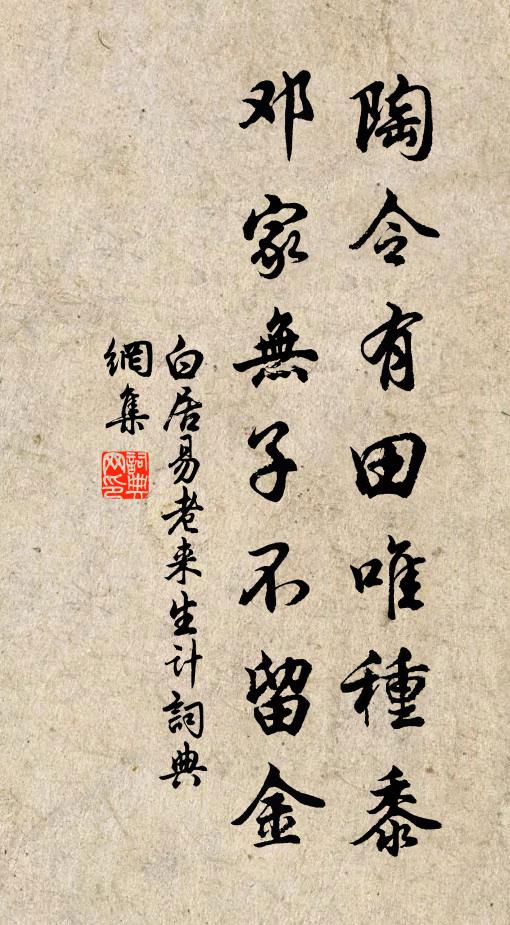 陶令有田唯種黍
邓家無子不留金
白居易老来生计詞典
網集
詞典
网印